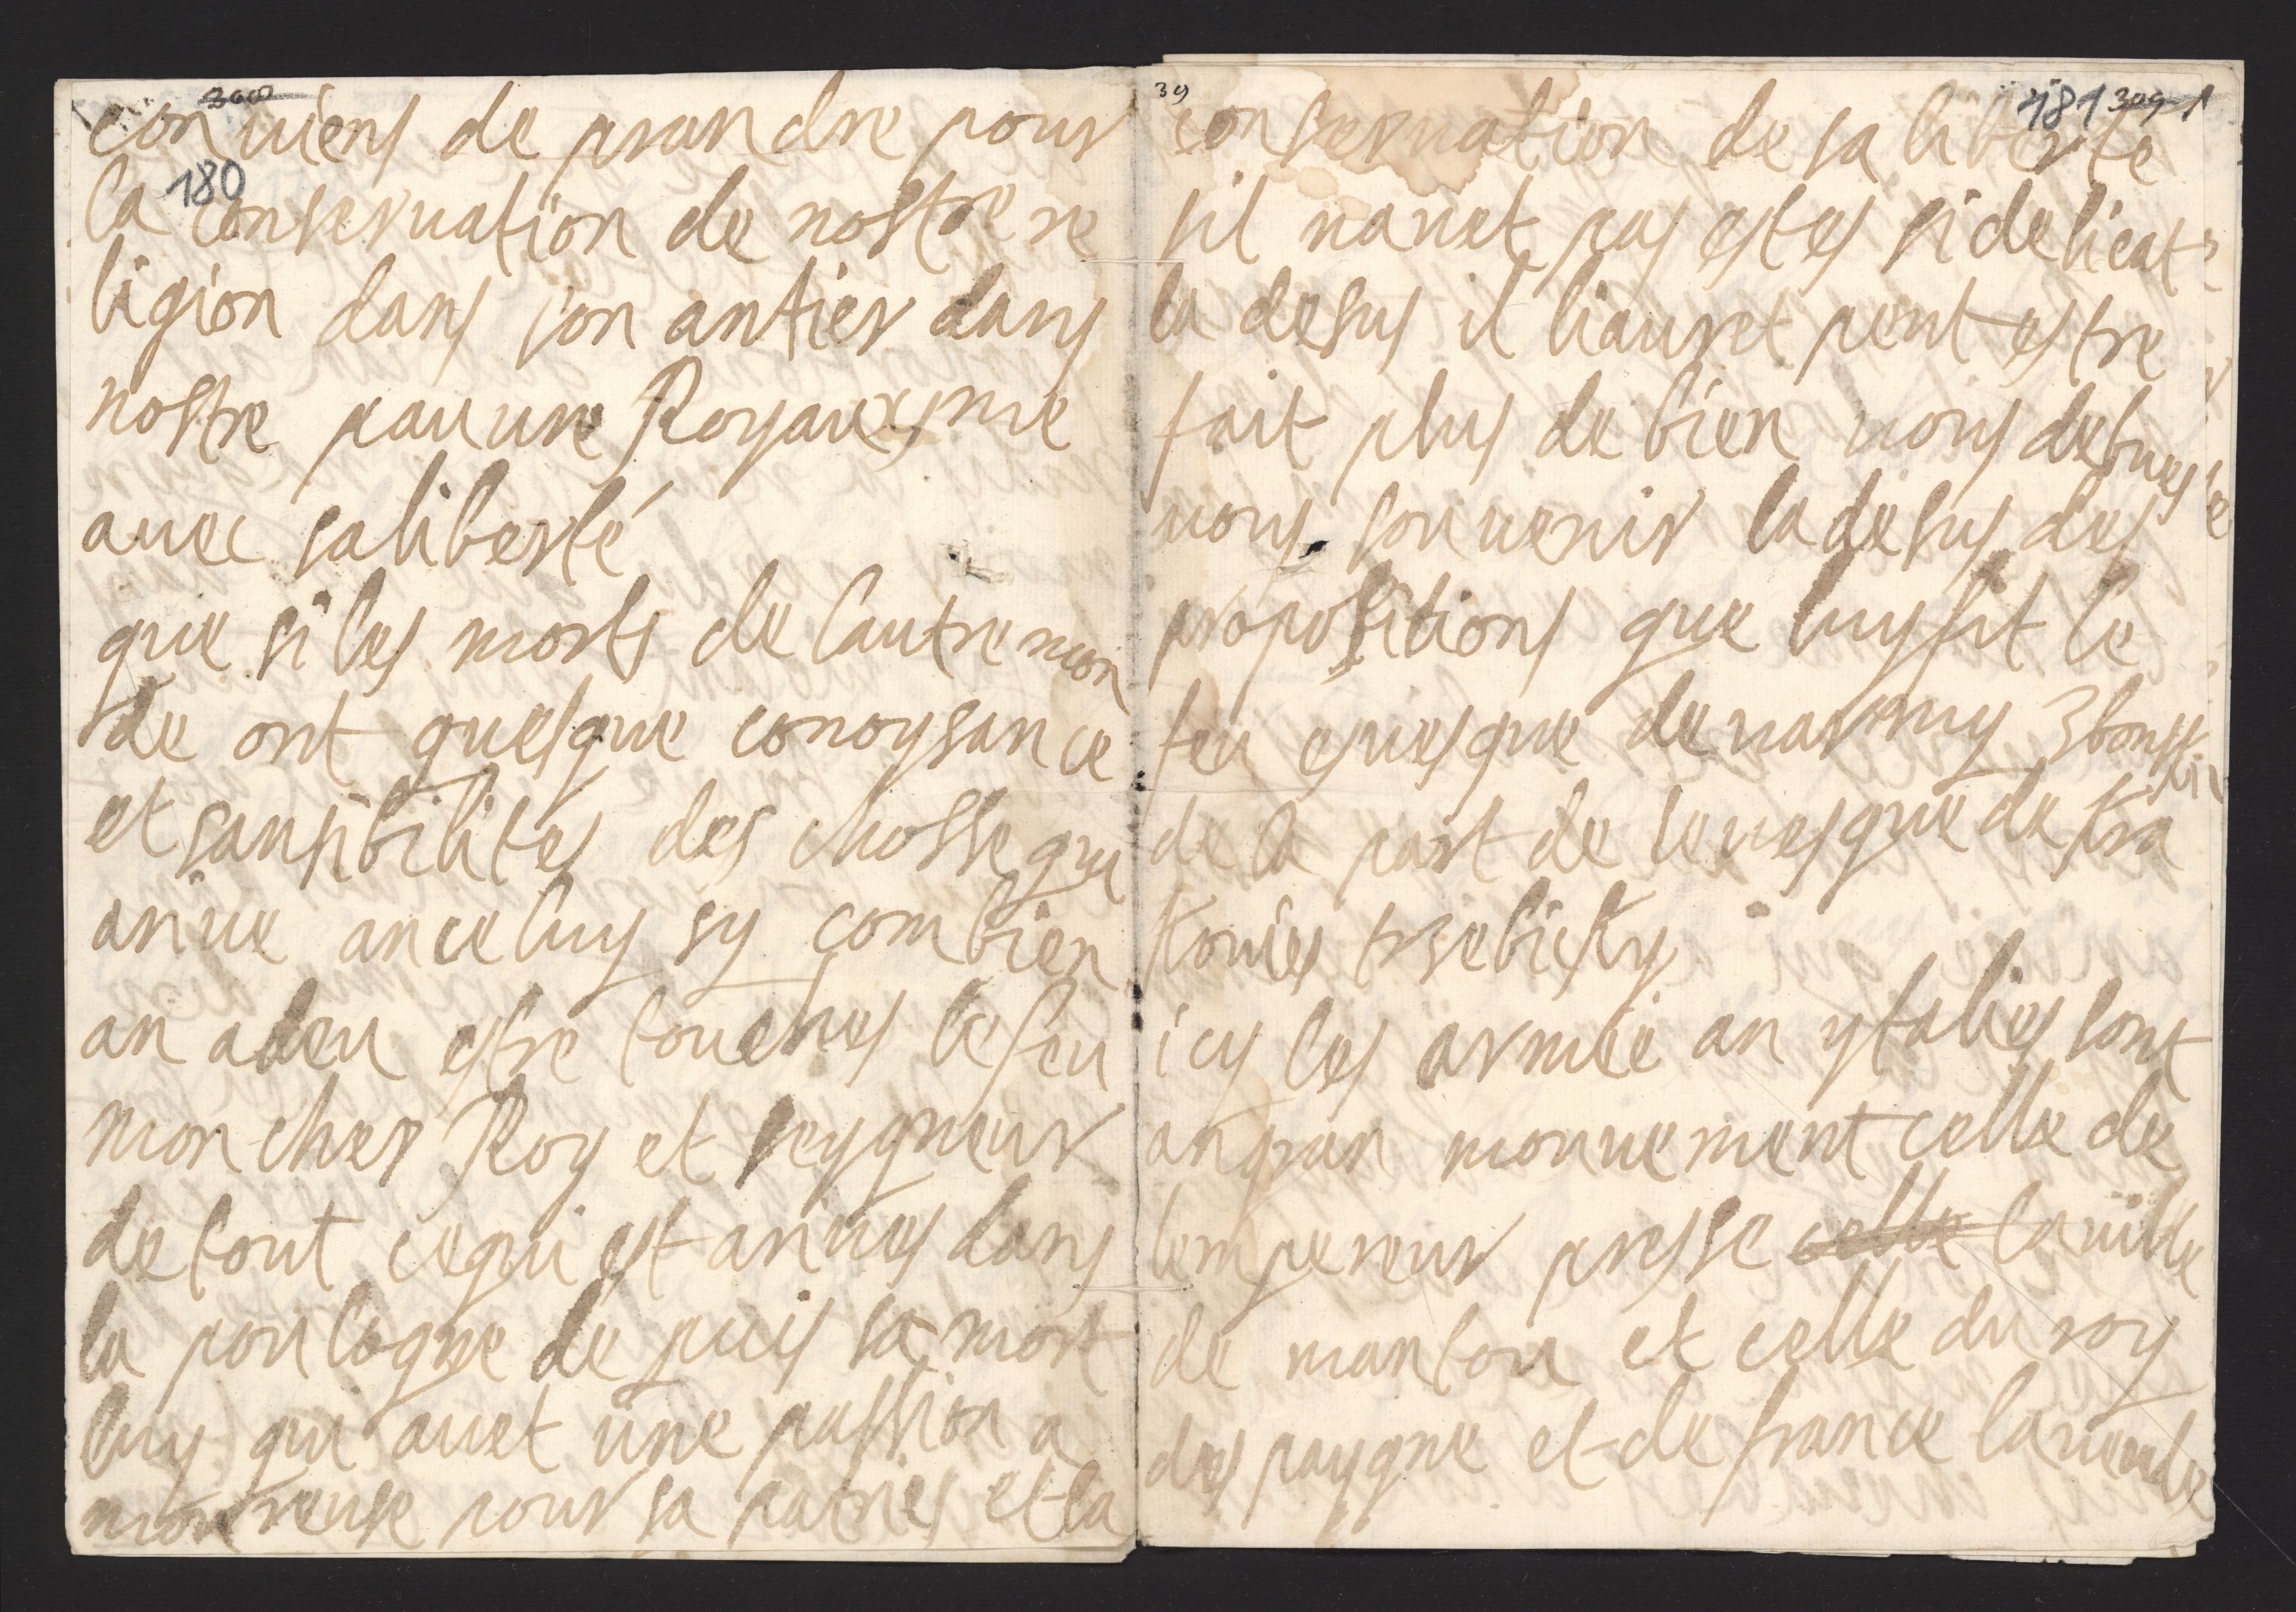 300
con uiens de prandre pour
180
la conseruation de nostre re
ligion dans son antier dans
nostre pauure Royaux,me
auec saliberté
que si les morts de lautre mon
de ont quesque conoysance
et sansibilites des chosse qui
ariue anceluy sy combien
an a deu estre touches le feu
mon cher Roy et seygneur
de tout cequi est ariues dans
la poulogne de puis sa mort
luy qui auet une passion a
moureuse pour sa patries et la
39
181 309-1
conseruation de sa liberte
sil nauet pas estes si delicat
la desus il liauret peut estre
fait plus de bien vous debues
vous souuenir ladesus des
propositions que luy fit le
feu euesque de uarmy
de la part de leuesque de kra
kouies trzebicky
icy les armée an ytalies sont
angran mouuement celle de
lempereur presse celle la uille
de mantou et celle du roy
des paygne et de france la